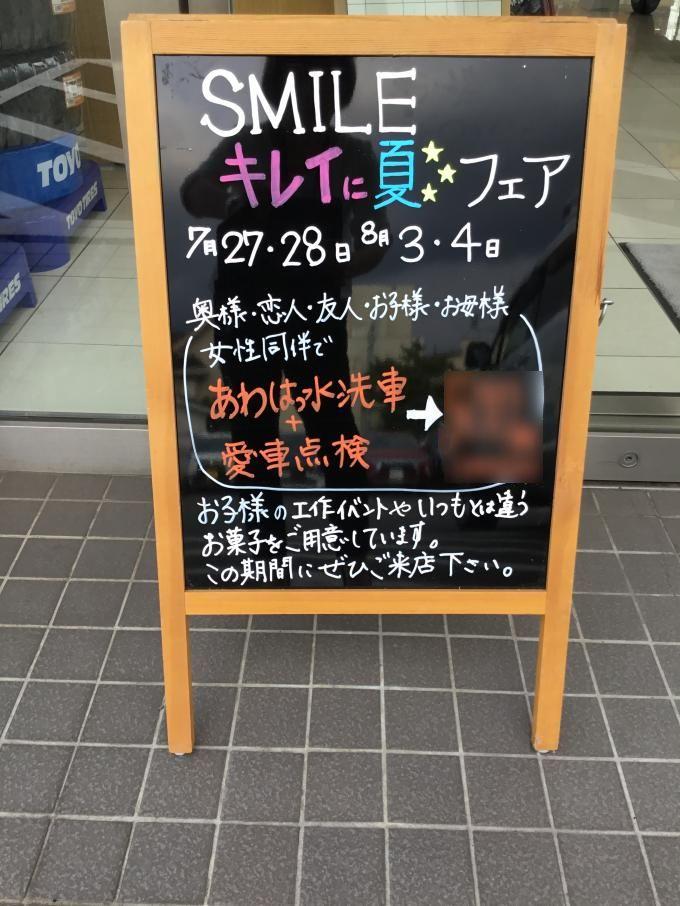 SMILE
キレイに夏フェア
7月27・28日 8月3・4日
奥様・恋人・友人・お子様・お母様
女性同伴で
あわはっ水洗車
+
愛車点検
→
お子様の工作イベントやいつもとは違う
お菓子をご用意しています。
この期間にぜひご来店下さい。
TOYO
TOYO TIRES
TIRES